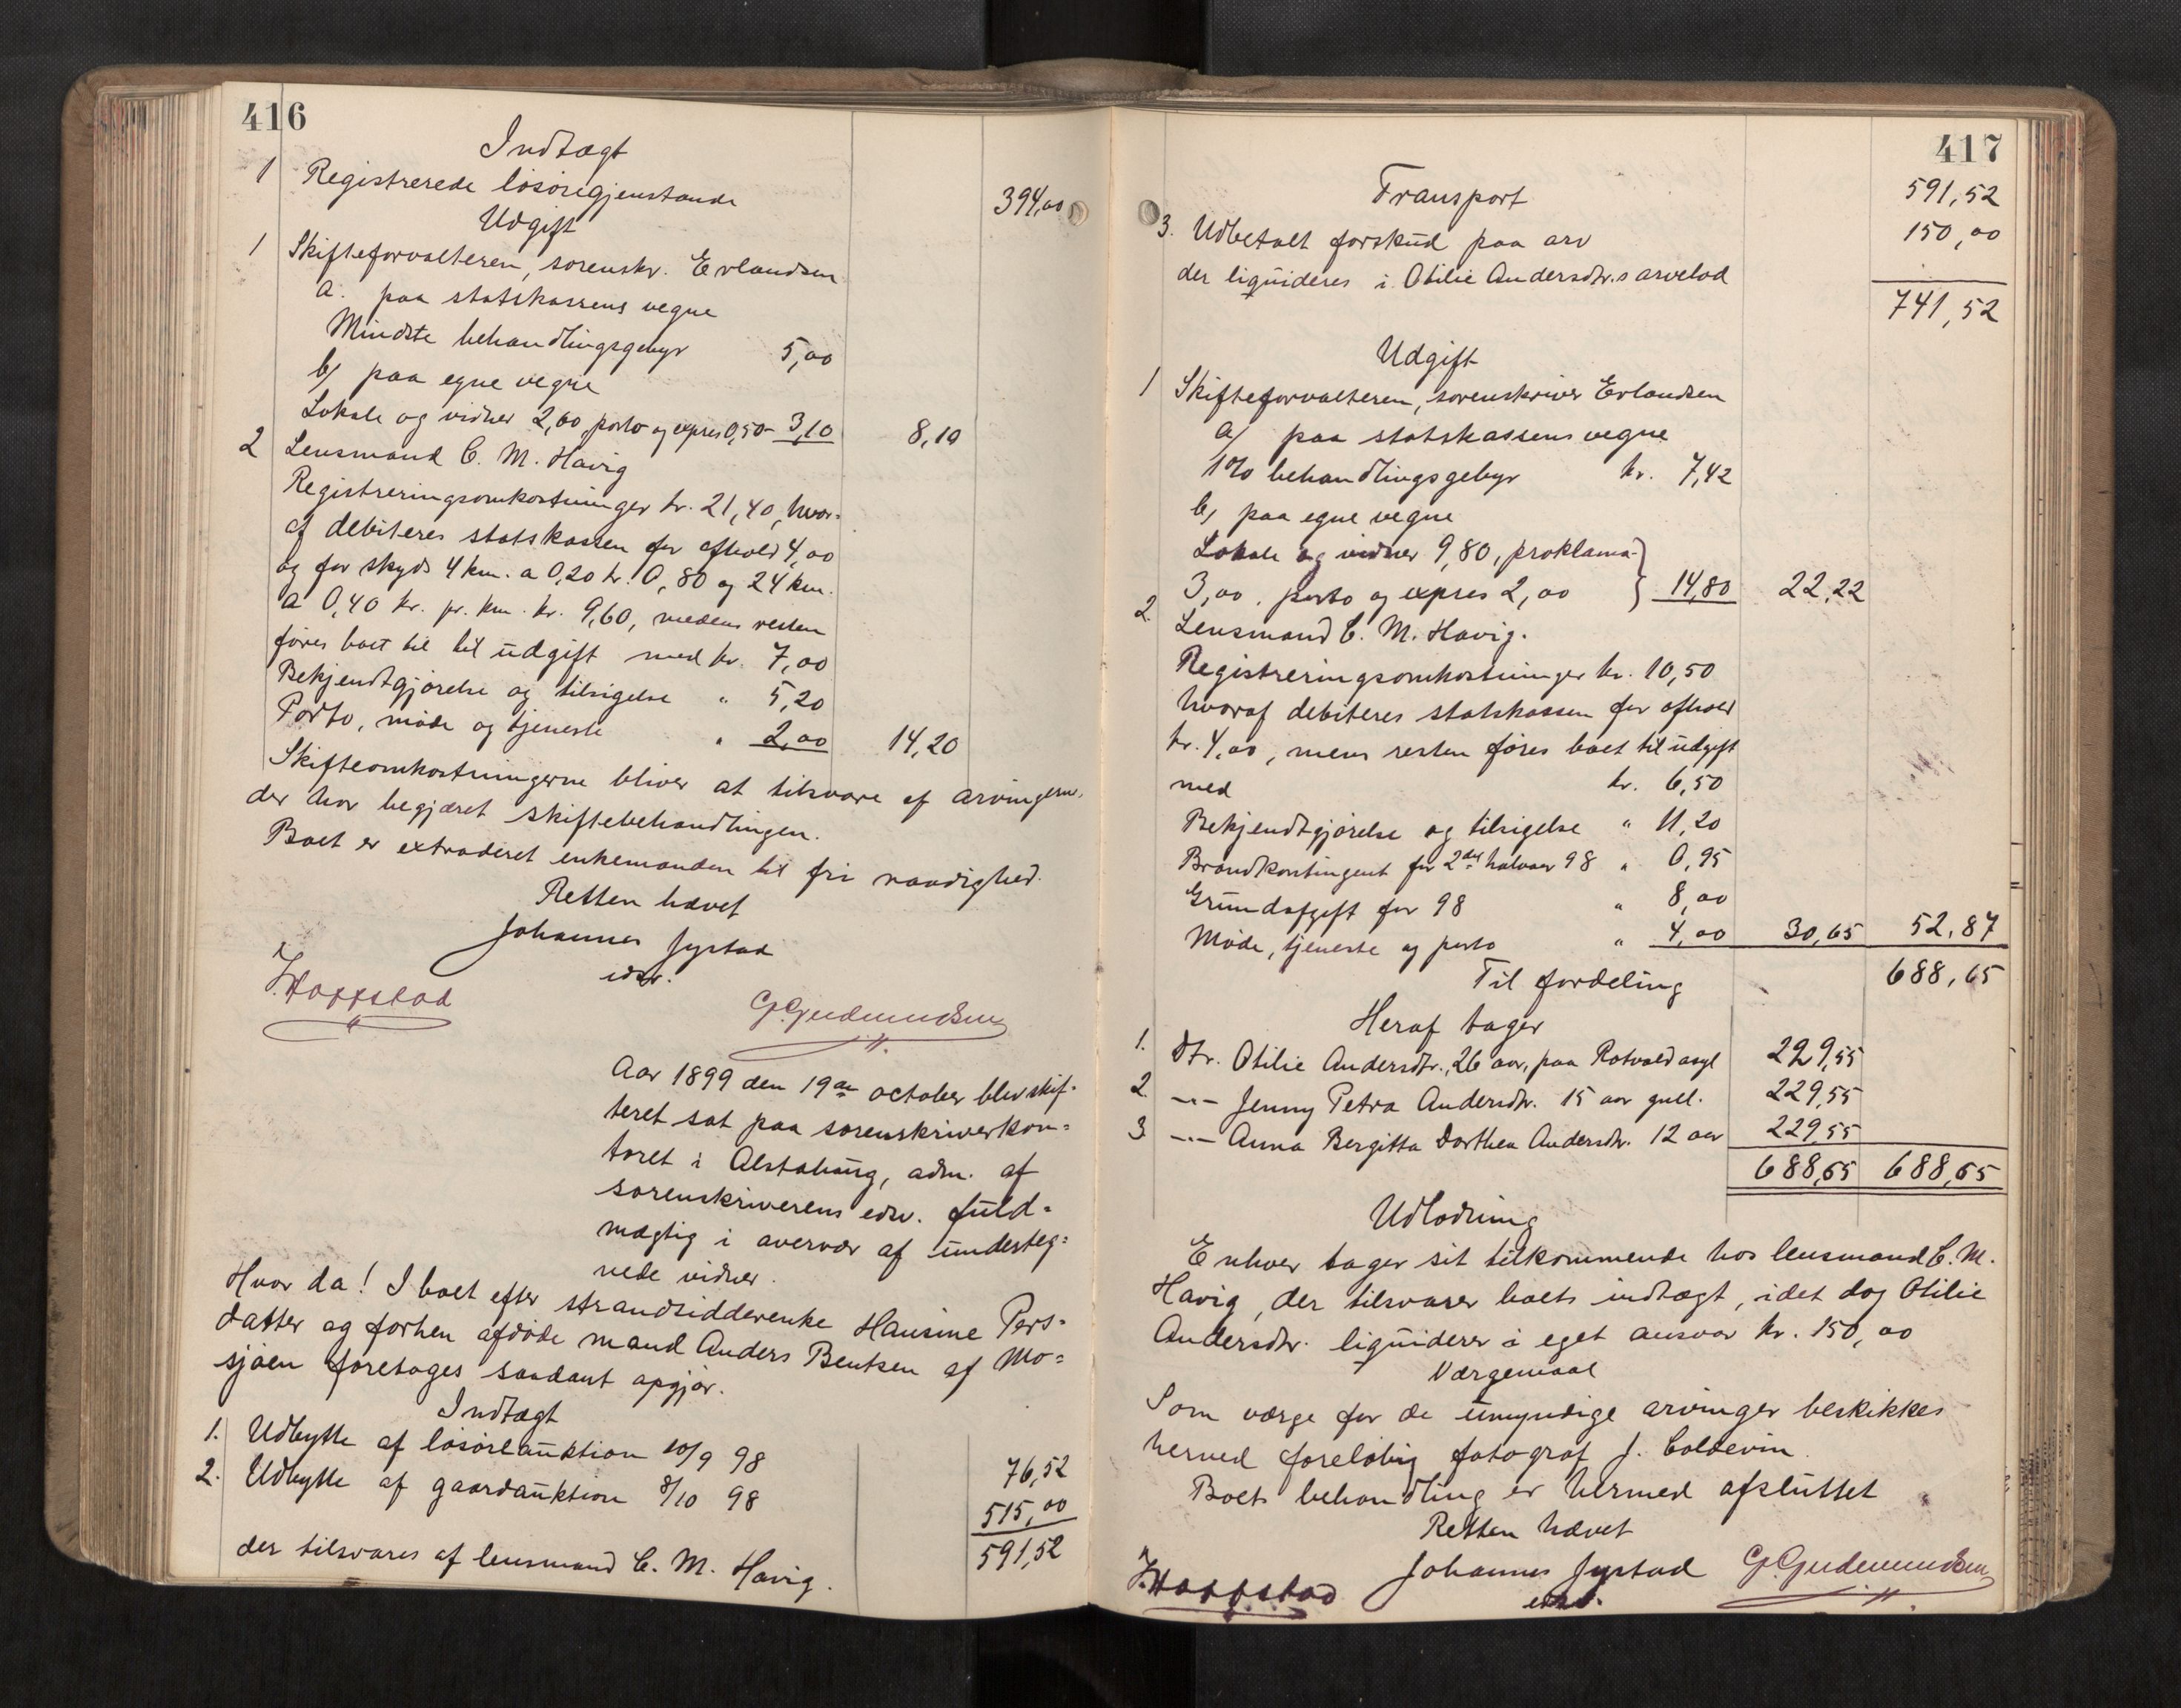 416
Indtægt
1 Registrerede løsøregjenstande 394,00
Udgift
1 Skifteforvalteren, sorenskr. Erlandsen
a. paa statskassens vegne
Mindste behandlingsgebyr 5,00
b) paa egne vegne
Lokale og vidner 2,60 porto og expres 0,50 - 3,10 8,10
2 Lensmand C. M. Havig
Registreringsomkostninger kr. 21,40, hvor-
af debiteres statskassen for afhold 4,00
og for skyds 4 km. a 0,20 kr. 0,80 og 24 km.
a 0,40 kr. pr. km. kr. 9,60, medens resten
føres boet til til udgift med kr. 7,00
Bekjendtgjørelse og tilsigelse " 5,20
Porto, møde og tjeneste " 2,00 14,20
Skifteomkostningerne bliver at tilsvare af arvingerne,
der har begjæret skiftebehandlingen.
Boet er extraderet enkemanden til fri raadighed.
Retten hævet
Johannes Jystad
edsv.
J. Hoffstad
G. Gudmundsen
Aar 1899 den 19de october blev skif-
teret sat paa sorenskriverkon-
toret i Alstahaug, adm. af
sorenskriverens edsv. fuld-
mægtig i overvær af underteg-
nede vidner.
Hvor da! I boet efter strandsidderenke Hansine Pers-
datter og forhen afdøde mand Anders Bentsen af Mo-
sjøen foretages saadant opgjør.
Indtægt
1. Udbytte af løsøreauktion 20/9 98 76,52
2. Udbytte af gaardauktion 8/10 98 515,00
der tilsvares af lensmand C. M. Havig. 591,52
417
Transport 591,52
3. Udbetalt forskud paa arv 150,00
der liquideres i Otilie Andersdtr.s arvelod
741,52
Udgift
1 Skifteforvalteren, sorenskriver Erlandsen
a) paa statskassens vegne
1% behandlingsgebyr kr. 7,42
b) paa egne vegne
Lokale og vidner 9,80, proklama
3,00, porto og expres 2,00 } 14,80 22,22
2. Lensmand C. M. Havig.
Registreringsomkostninger kr. 10,50
hvoraf debiteres statskassen for afhold
kr. 4,00, mens resten føres boet til udgift
med kr. 6,50
Bekjendtgjørelse og tilsigelse " 11,20
Brandkontingent for 2det halvaar 98 " 0,95
Grundafgift for 98 " 8,00
Møde, tjeneste og porto " 4,00 30,65 52,87
Til fordeling 688,65
Heraf tager
1. Dtr. Otilie Andersdtr., 26 aar, paa Rotvold asyl 229,55
2. -"- Jenny Petra Andersdtr. 15 aar gml. 229,55
3. -"- Anna Bergitta Dorthea Andersdtr. 12 aar 229,55
688,65 688,65
Udlodning
Enhver tager sit tilkommende hos lensmand C. M.
Havig, der tilsvarer boets indtægt, idet dog Otilie
Andersdtr. liquiderer i eget ansvar kr. 150,00
Værgemaal
Som værge for de umyndige arvinger beskikkes
herved foreløbig fotograf J. Coldevin.
Boets behandling er hermed afsluttet
Retten hævet
J. Hoffstad Johannes Jystad G. Gudmundsen
edsv.